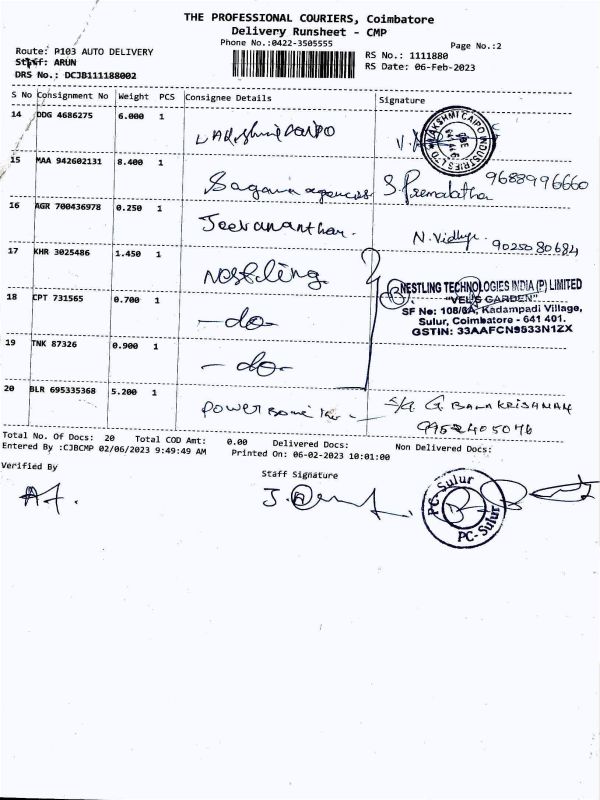 THE PROFESSIONAL COURIERS, Coimbatore
Delivery Runsheet - CMP
Phone No.:0422-3505555
Page No.:2
Route: P103 AUTO DELIVERY
RS No.: 1111880
Staff: ARUN
RS Date: 06-Feb-2023
DRS No.: DCJB111188002
S No Consignment No Weight PCS Consignee Details Signature
14 DDG 4686275 6.000 1
LAKSHMI CAIPO INDUSTRIES LTD
15 MAA 942602131 8.400 1
Sagana agencies S. Premalatha 9688996660
16 AGR 700436978 0.250 1
Jeevananthan. N. Vidhya. 9025080684
17 KHR 3025486 1.450 1
Nestling
NESTLING TECHNOLOGIES INDIA (P) LIMITED
"VEL'S GARDEN"
SF No: 108/6A, Kadampadi Village,
Sulur, Coimbatore - 641 401.
GSTIN: 33AAFCN9533N1ZX
18 CPT 731565 0.700 1
-do-
19 TNK 87326 0.900 1
-do-
20 BLR 695335368 5.200 1
Power G. BALAKRISHNAN
9952405076
Total No. Of Docs: 20 Total COD Amt: 0.00 Delivered Docs: Non Delivered Docs:
Entered By :CJBCMP 02/06/2023 9:49:49 AM Printed On: 06-02-2023 10:01:00
Verified By
Staff Signature
PC-Sulur
PC-Sulur